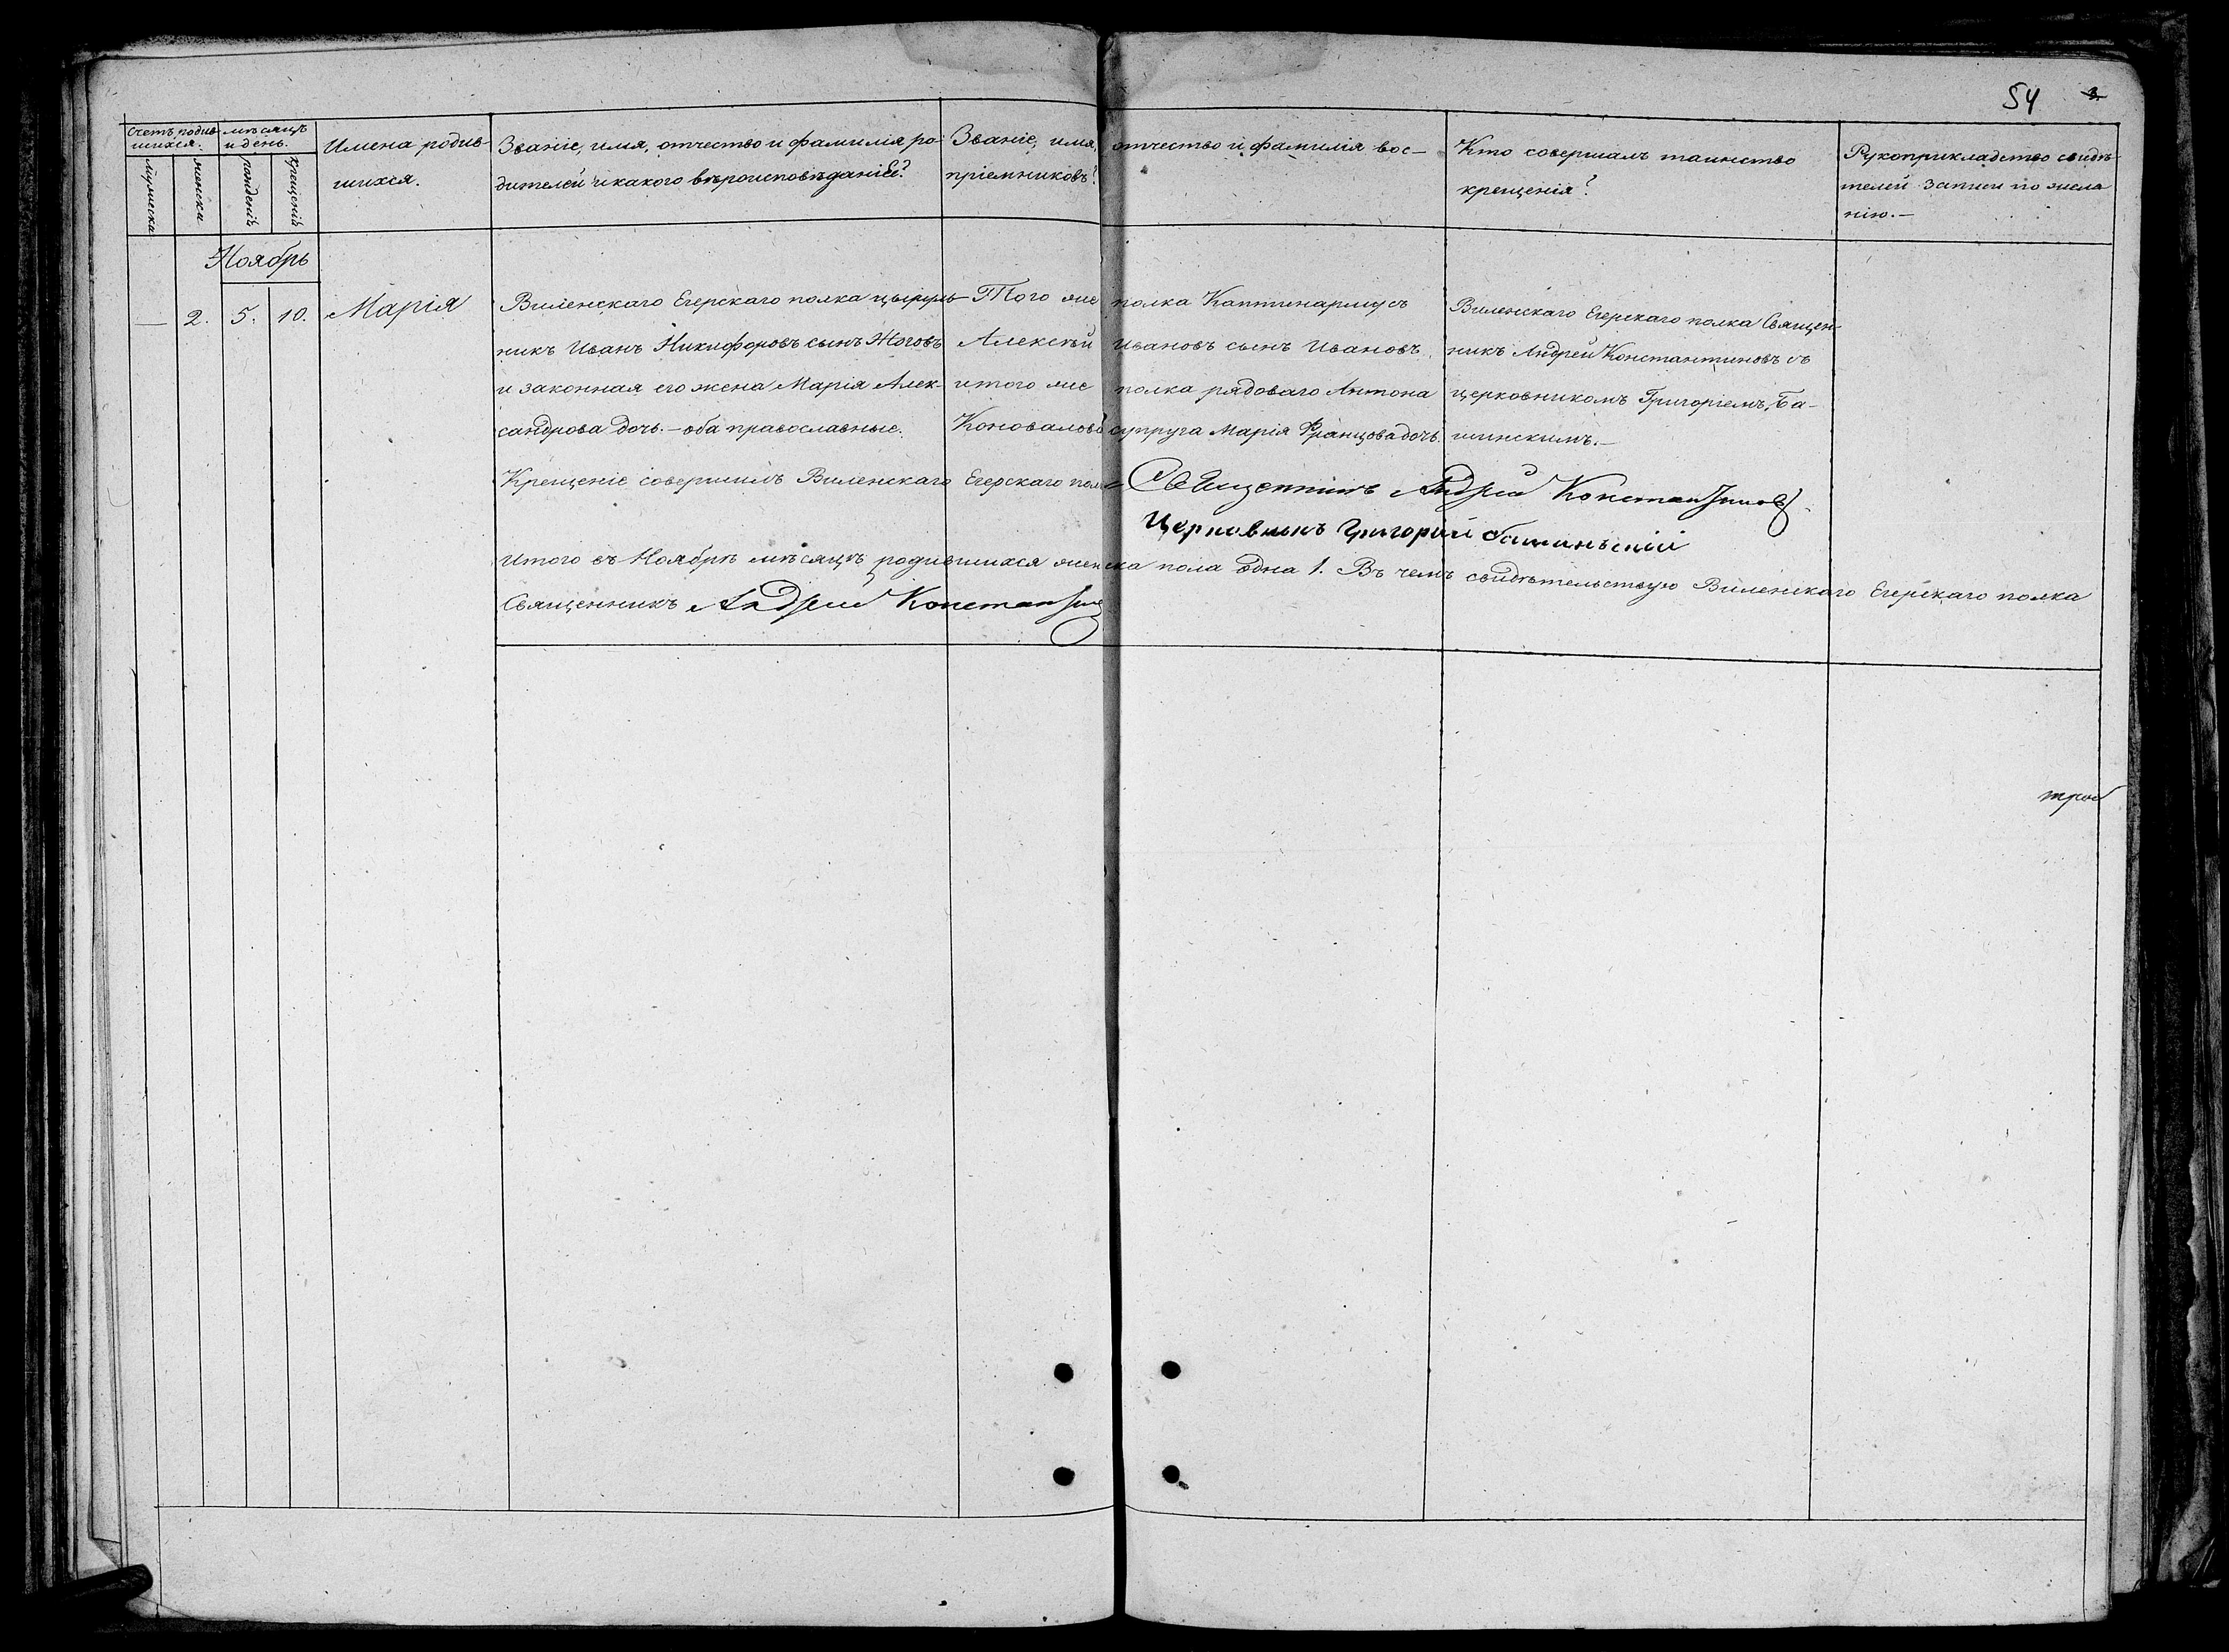 54 3.
Счетъ родив-
шихся.
мѣсяцъ
и день.
Мужеска
женска
Рожденія
Крещенія
Имена родив-
шихся.
Званіе, имя, отчество и фамилія ро-
дителей и какого вѣроисповѣданіе?
Званіе, имя, отчество и фамилія вос-
пріемниковъ?
Кто совершалъ таинство
крещенія?
Рукоприкладство свидѣ-
телей записи по жела
нію.—
Ноябрь
— 2. 5. 10. Марія
Виленскаго Егерскаго полка цырюль-
никъ Иванъ Никифоровъ сынъ Жоговъ
и законная его жена Марія Алек-
сандрова дочь.— оба православные.
Того же полка Каптинармусъ
Алексѣй Ивановъ сынъ Ивановъ,
и того же полка рядоваго Антона
Коновалова супруга Марія Францова дочь.
Виленскаго Егерскаго полка Священ-
никъ Андрей Константиновъ съ
церковникомъ Григоріемъ Ба-
шинскимъ.—
Крещеніе совершилъ Виленскаго Егерскаго полка Священникъ Андрей Константиновъ.
Церковникъ Григорій Башинскій
Итого въ Ноябрѣ мѣсяцѣ родившихся женска пола одна 1. Въ чемъ свидѣтельствую Виленскаго Егерскаго полка
Священникъ Андрей Константиновъ